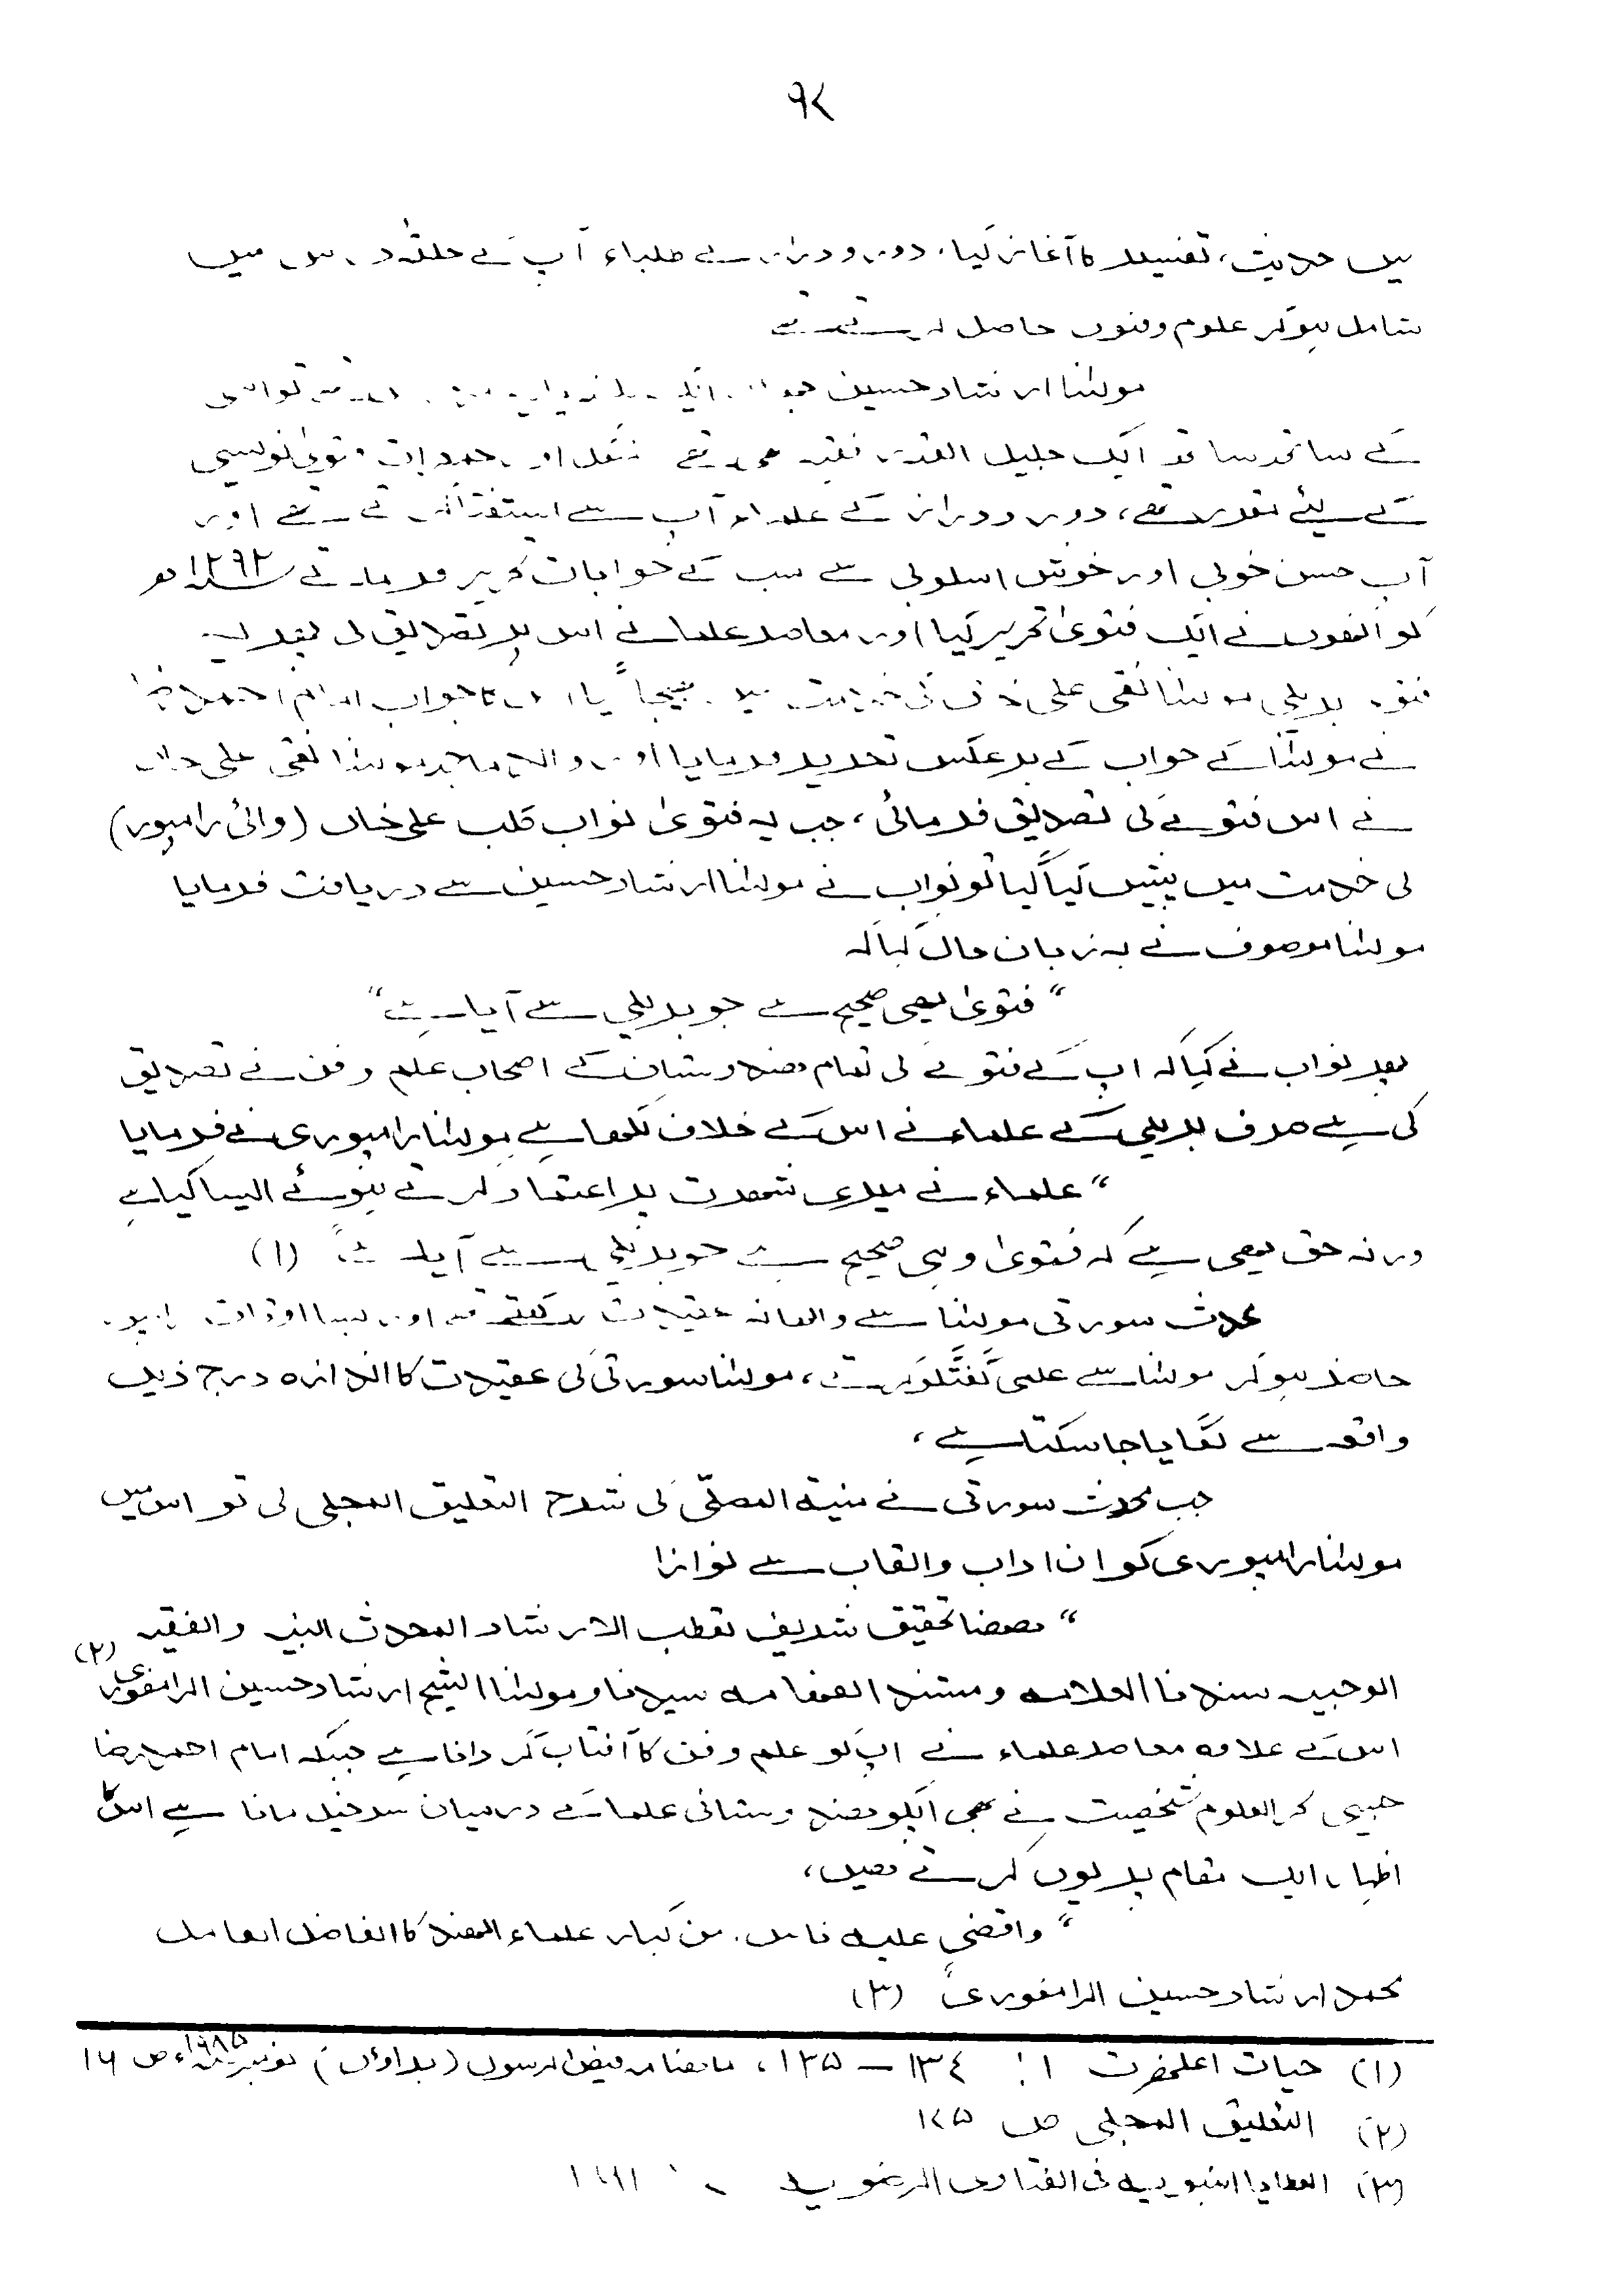 ۹۷
میں حدیث، تفسیر کا آغاز کیا، دور و دراز سے طلباء آپ کے حلقہ درس میں
شامل ہوکر علوم وفنون حاصل کرتے تھے
مولٰنا ارشاد حسین
کے ساتھ ساتھ ایک جلیل القدر فقیہ بھی تھے فتویٰ نویسی
کے لیئے تھے، دور و دراز کے علماء آپ سے استفتاء کرتے تھے اور
آپ حسن خوبی اور خوش اسلوبی سے سب کے جوابات تحریر فرماتے ۱۲۹۲ھ
کو انھوں نے ایک فتویٰ تحریر کیا اور معاصر علما نے اس پر تصدیق کی
بریلی مولٰنا نقی علی خاں کی خدمت میں بھیجا گیا اس کا جواب امام احمد رضا
نے مولٰنا کے جواب کے برعکس تحریر فرمایا اور والد ماجد مولٰنا نقی علی خاں
نے اس فتوے کی تصدیق فرمائی، جب یہ فتویٰ نواب کلب علی خاں (والئ رامپور)
کی خدمت میں پیش کیا گیا تو نواب نے مولٰنا ارشاد حسین سے دریافت فرمایا
مولٰنا موصوف نے بہ زبان حال کہا کہ
“فتویٰ یہی صحیح ہے جو بریلی سے آیا ہے”
پھر نواب نے کہا کہ آپ کے فتوے کی تمام ہندوستان کے اصحاب علم و فن نے تصدیق
کی ہے صرف بریلی کے علماء نے اس کے خلاف لکھا ہے مولٰنا رامپوری نے فرمایا
“علماء نے میری شہرت پر اعتماد کرتے ہوئے ایسا کیا ہے
ورنہ حق یہی ہے کہ فتویٰ وہی صحیح ہے جو بریلی سے آیا ہے” (۱)
محدث سورتی مولٰنا سے والہانہ عقیدت رکھتے تھے اور بسا اوقات
حاضر ہوکر مولٰنا سے علمی گفتگو کرتے، مولٰنا سورتی کی عقیدت کا اندازہ درج ذیل
واقعہ سے لگایا جاسکتا ہے،
جب محدث سورتی نے منیۃ المصلی کی شرح التعلیق المجلی کی تو اس میں
مولٰنا رامپوری کو ان اداب والقاب سے نوازا
“ھھنا تحقیق شریف لقطب الارشاد المحدث النبیہ والفقیہ
الوجیہ سندنا العلامہ ومستند الفھامہ سیدنا ومولٰنا الشیخ ارشاد حسین الرامفوری (۲)
اس کے علاوہ معاصر علماء نے آپ کو علم و فن کا آفتاب گردانا ہے جبکہ امام احمد رضا
جیسی بحر العلوم شخصیت نے بھی آپکو ہندوستانی علما کے درمیان سرخیل مانا ہے اس کا
اظہار ایک مقام پر یوں کرتے ھیں،
“واقضی علیہ ناس من کبار علماء الھند کالفاضل الکامل
محمد ارشاد حسین الرامفوری” (۳)
(۱) حیات اعلحضرت ۱: ۱۳٤ – ۱۳۵، ماہنامہ فیض الرسول (براؤں) نومبر ۱۹۸۵ء ص ۱۶
(۲) التعلیق المجلی ص ۱۷۵
(۳) العطایا النبویہ فی الفتاوی الرضویہ